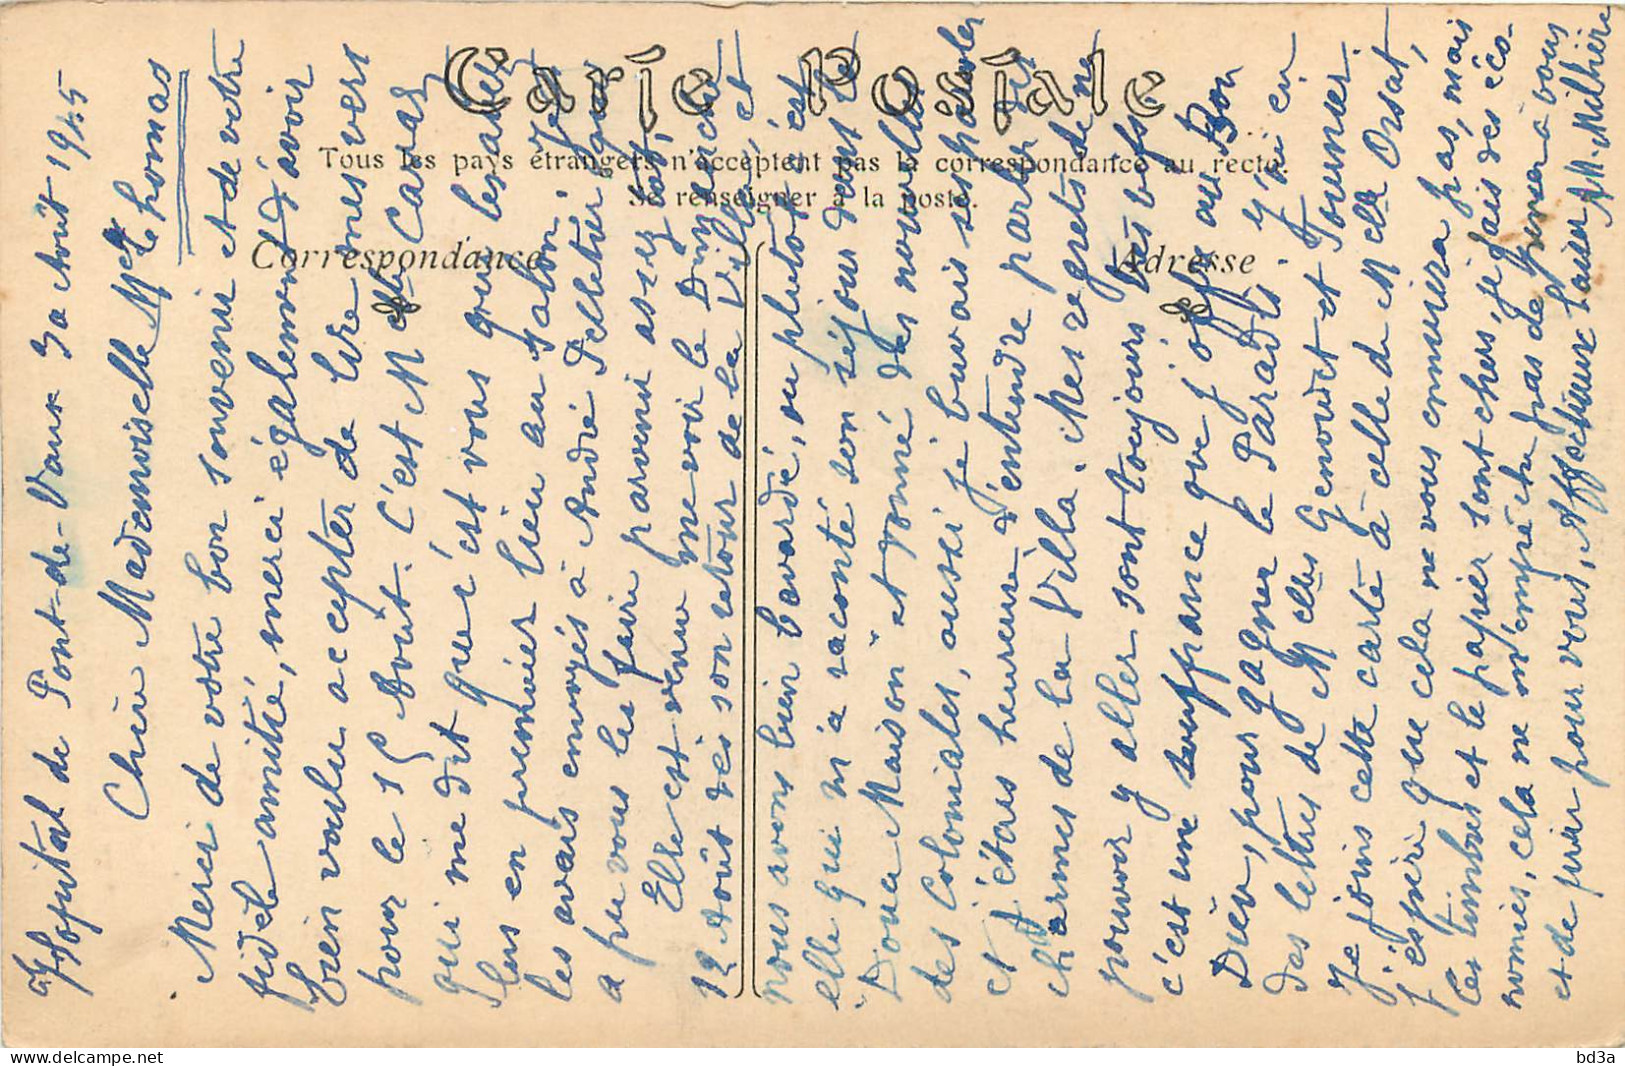 Carte Postale
Tous les pays étrangers n'acceptent pas la correspondance au recto.
Se renseigner à la poste.
Correspondance
Adresse
Hopital de Pont-de-Vaux 30 Août 1915
Chère Mademoiselle Mlle Thomas
Merci de votre bon souvenir et de votre
fidèle amitié, merci également d'avoir
bien voulu accepter de lire mes vers
pour le 15 Août. C'est Mlle Carraz
qui me dit que c'est vous qui les avez
lus en premier lieu au salon. Je
les avais envoyés à André Pelletier qui
a pu vous les faire parvenir assez tôt,
Elle est venu me voir le Dimanche
12 Août dès son retour de la Villa, et
nous avons bien bavardé, ou plutôt c'est
elle qui m'a raconté son séjour dont la
"Douce Maison" et donné des nouvelles
des Coloniales, aussi je buvais ses paroles
et j'étais heureuse d'entendre parler des
charmes de la Villa. Mes regrets de ne
pouvoir y aller sont toujours très vifs
c'est une souffrance que j'offre au Bon
Dieu, pour gagner le Paradis. J'ai eu
des lettres de Mlles Genoudet et Tournier.
Je joins cette carte à celle de Mlle Orsat,
j'espère que cela ne vous ennuiera pas, mais
les timbres et le papier sont chers, je fais des éco-
nomies, cela ne m'empêche pas de penser à vous
et de prier pour vous, Affectueux baiser M. Milhière
bd3a